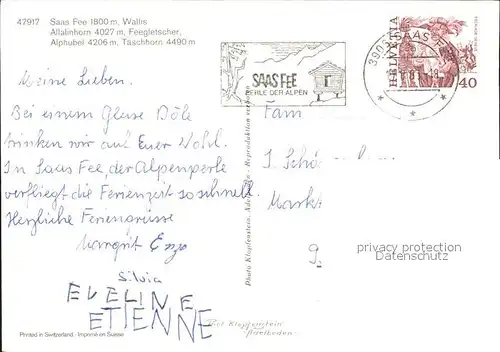 47917 Saas Fee 1800 m, Wallis
Allalinhorn 4027 m, Feegletscher,
Alphubel 4206 m, Täschhorn 4490 m
SAAS FEE
PERLE DER ALPEN
3906 SAAS-FEE
HELVETIA
40
Meine Lieben.
Bei einem Glase Dôle
trinken wir auf Euer Wohl.
In Saas Fee, der Alpenperle
verfliegt die Ferienzeit so schnell.
Herzliche Feriengrüsse
Margrit Enzo
Silvia
EVELINE
ETIENNE
Fam
J. Schö
Markt
9
privacy protection
Datenschutz
Photo Klopfenstein, Adelboden - Reproduktion verboten
Printed in Switzerland - Imprimé en Suisse
Klopfenstein
Adelboden